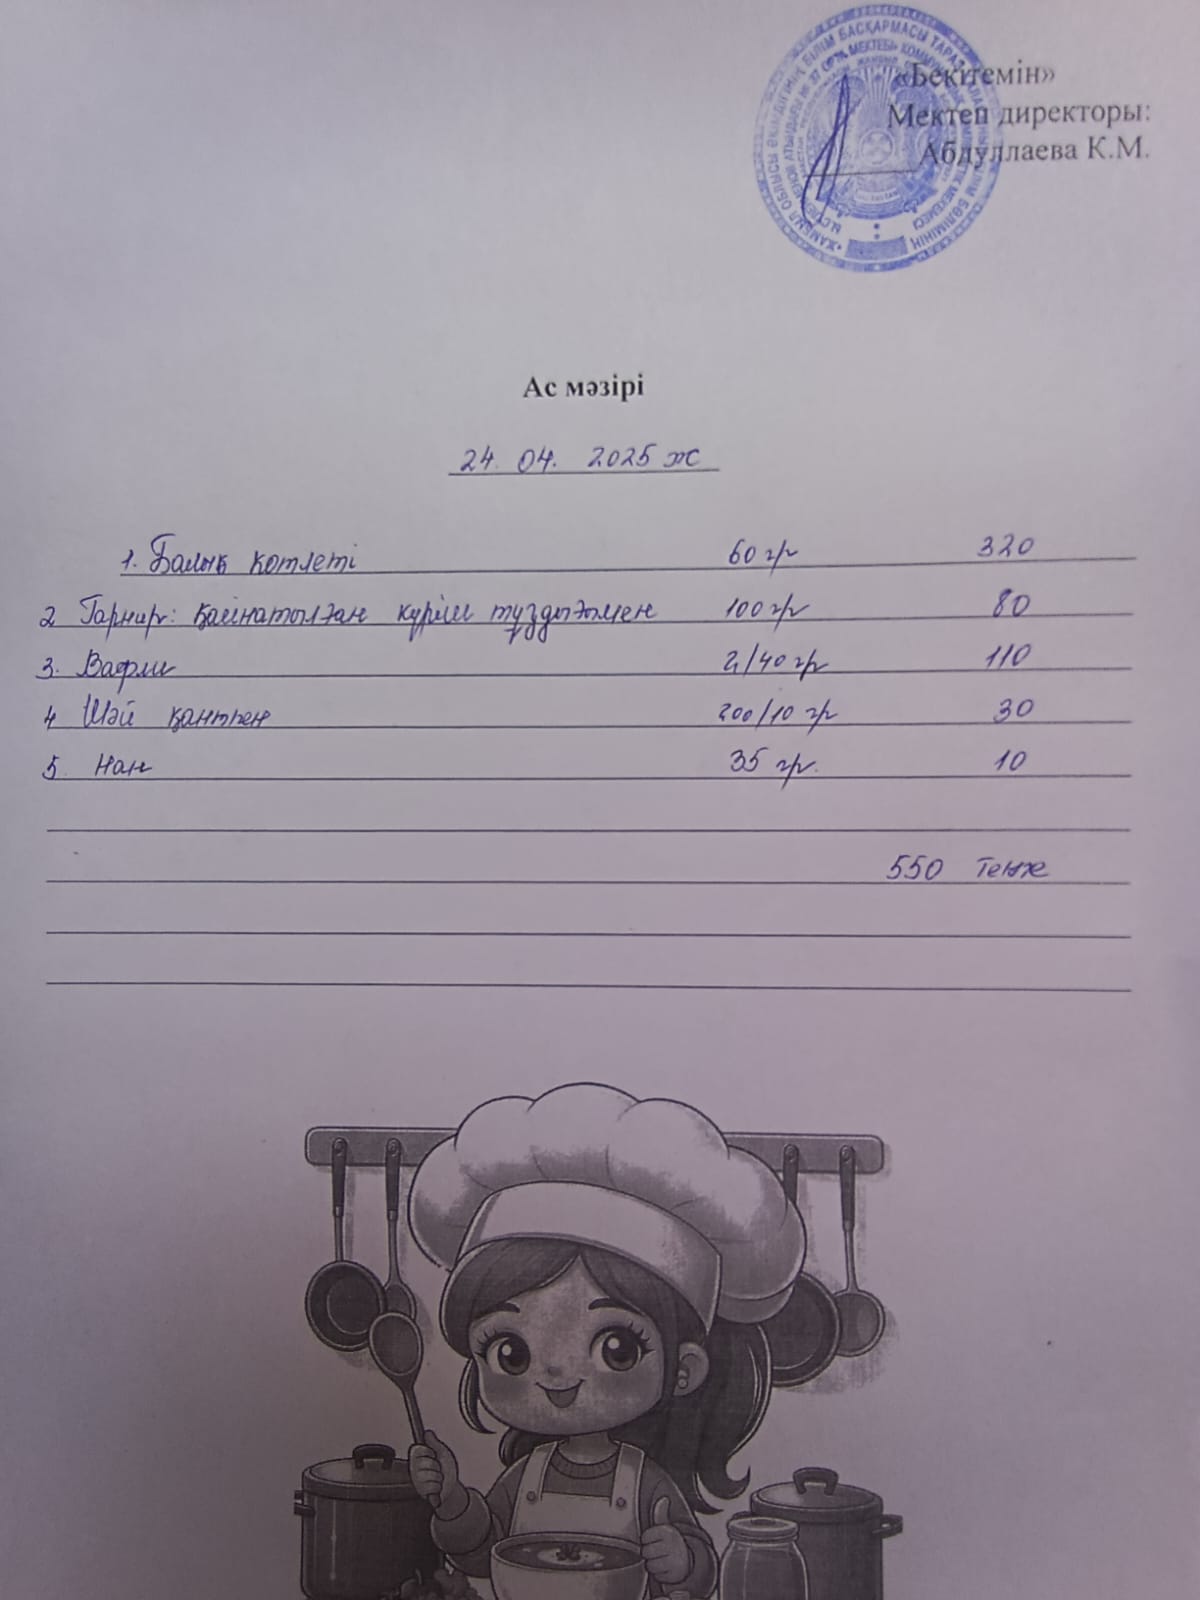 «Бекітемін»
Мектеп директоры:
Абдуллаева К.М.
Ас мәзірі
24. 04. 2025 ж
1. Балық котлеті 60 гр 320
2 Гарнир: қайнатылған күріш тұздығымен 100 гр 80
3. Вафли 2/40 гр 110
4 Шәй қантпен 200/10 гр 30
5. Нан 35 гр. 10
550 теңге